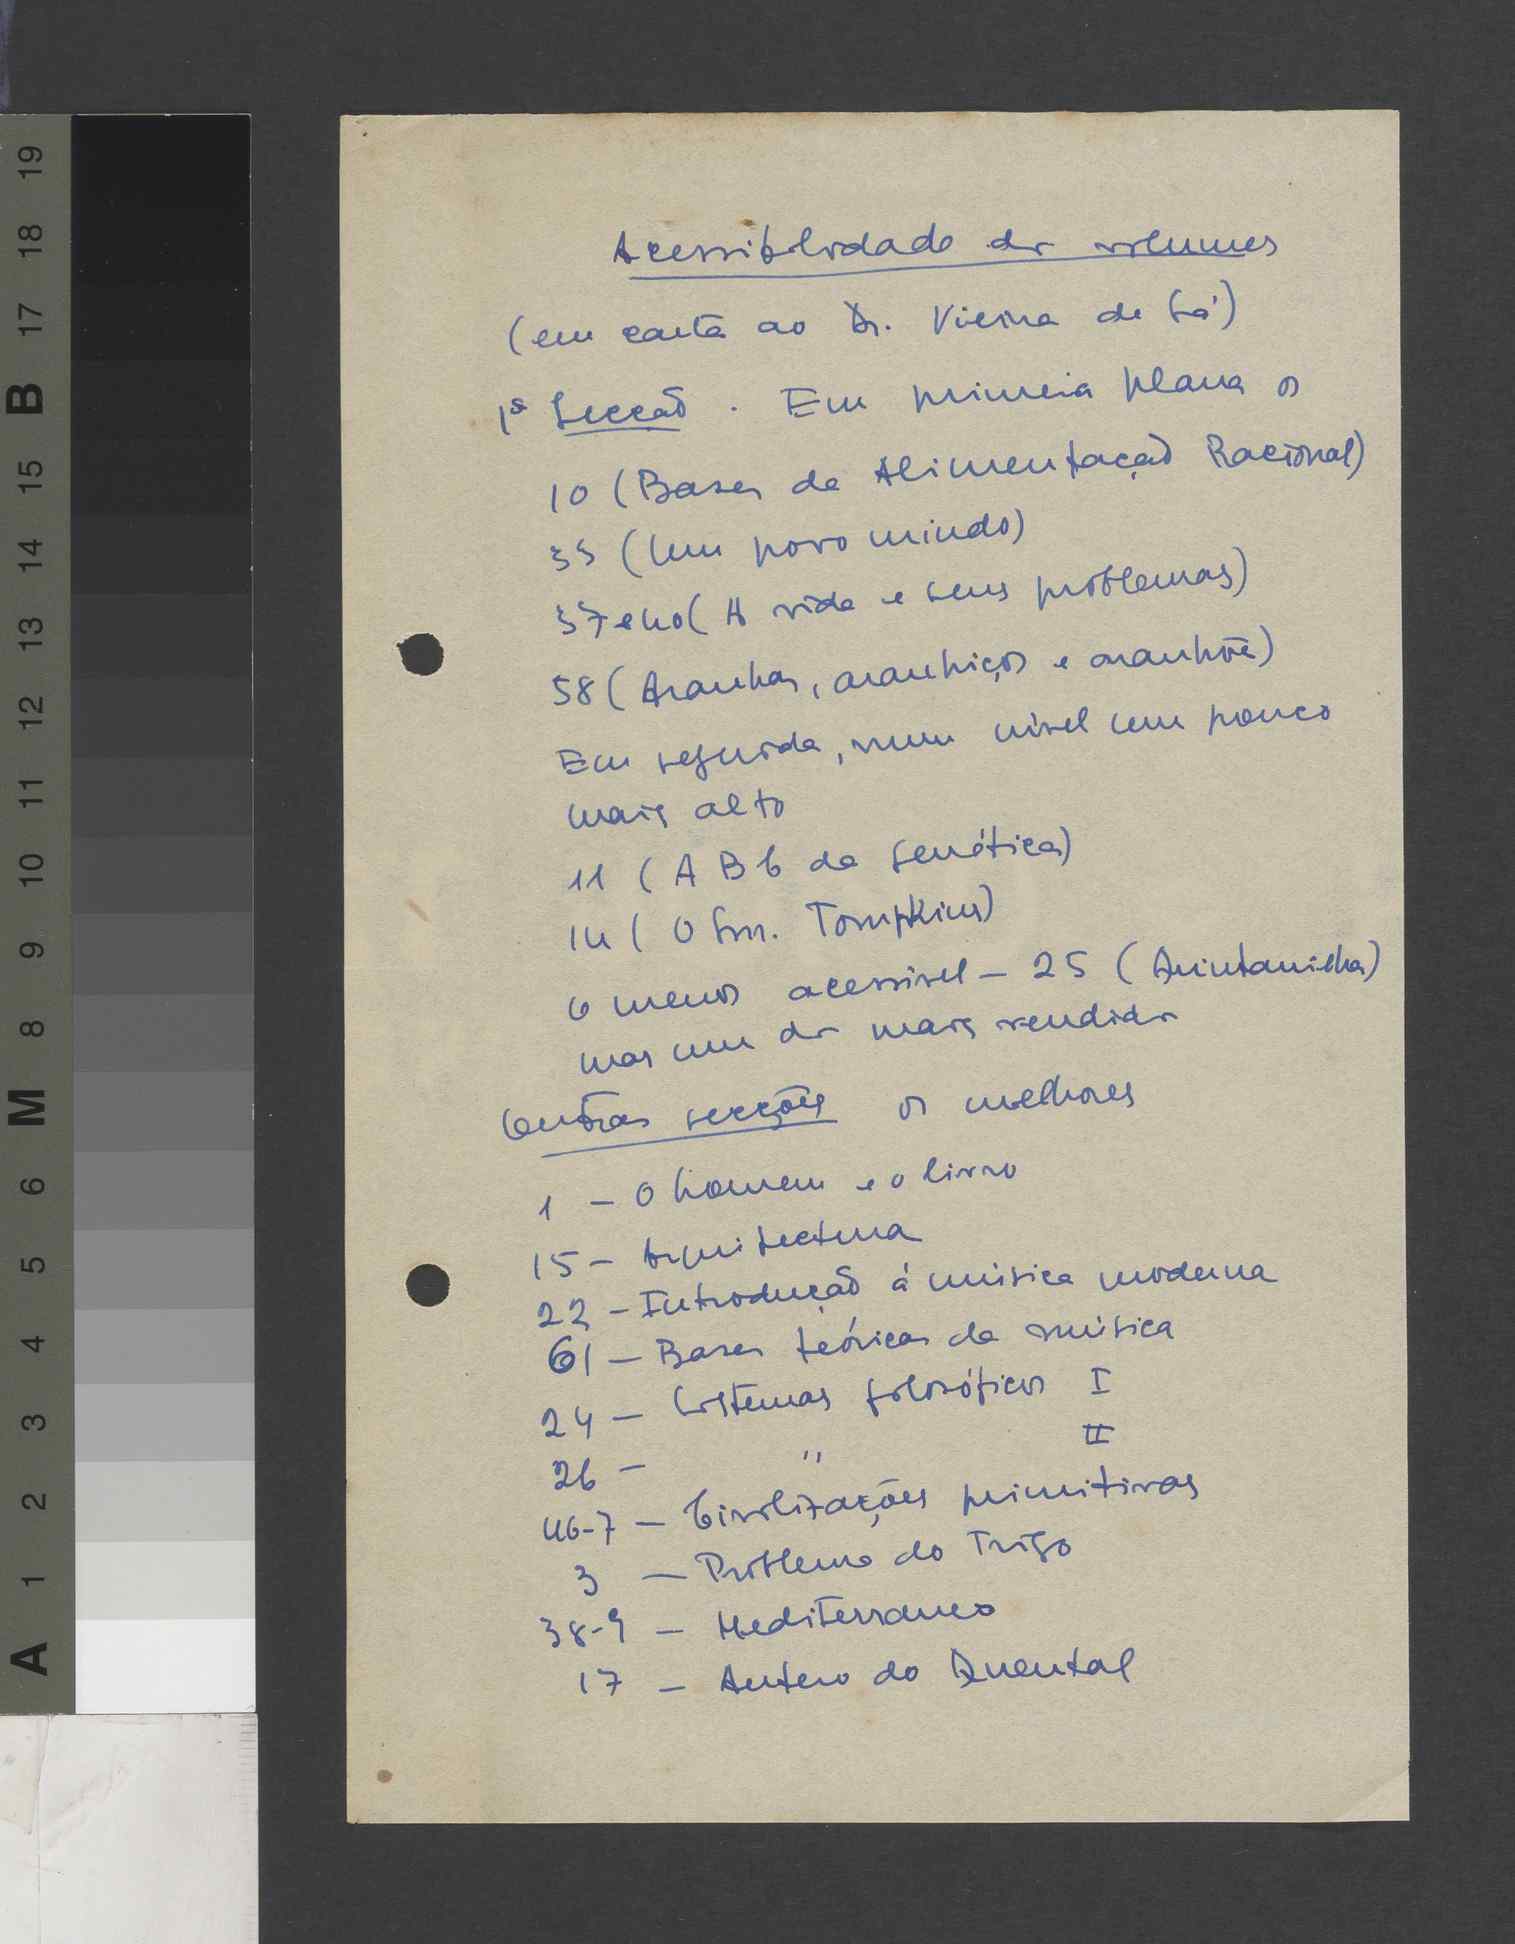 Acessibilidade dos volumes
(em carta ao Dr. Vieira de Sá)
1ª Secção . Em primeira plana os
10 (Bases da Alimentação Racional)
35 (Um povo miudo)
37 e 40 (A vida e seus problemas)
58 (Aranhas, aranhiços e aranhões)
Em seguida, num nível um pouco
mais alto
11 (A B C da Genética)
14 (O Snr. Tompkins)
O menos acessivel – 25 (Quintanilha)
mas um dos mais vendidos
Outras secções os melhores
1 – O homem e o livro
15 – Arquitectura
22 – Introdução á música moderna
61 – Bases teóricas da música
24 – Sistemas filosóficos I
26 – " II
46-7 – Civilizações primitivas
3 – Problema do Trigo
38-9 – Mediterraneo
17 – Antero do Quental
19
18
17
B
15
14
13
12
11
10
9
8
M
6
5
4
3
2
1
A